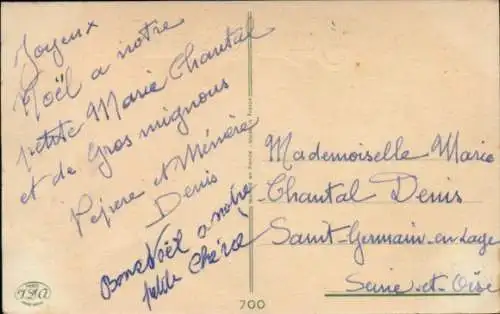 Joyeux
Noël a notre
petite Marie Chantal
et de Gros mignons
Pépère et Mémère
Denis
Bonc Noël a notre
petite Chérie
Mademoiselle Marie
Chantal Denis
Saint-Germain-en-Laye
Seine-et-Oise
700